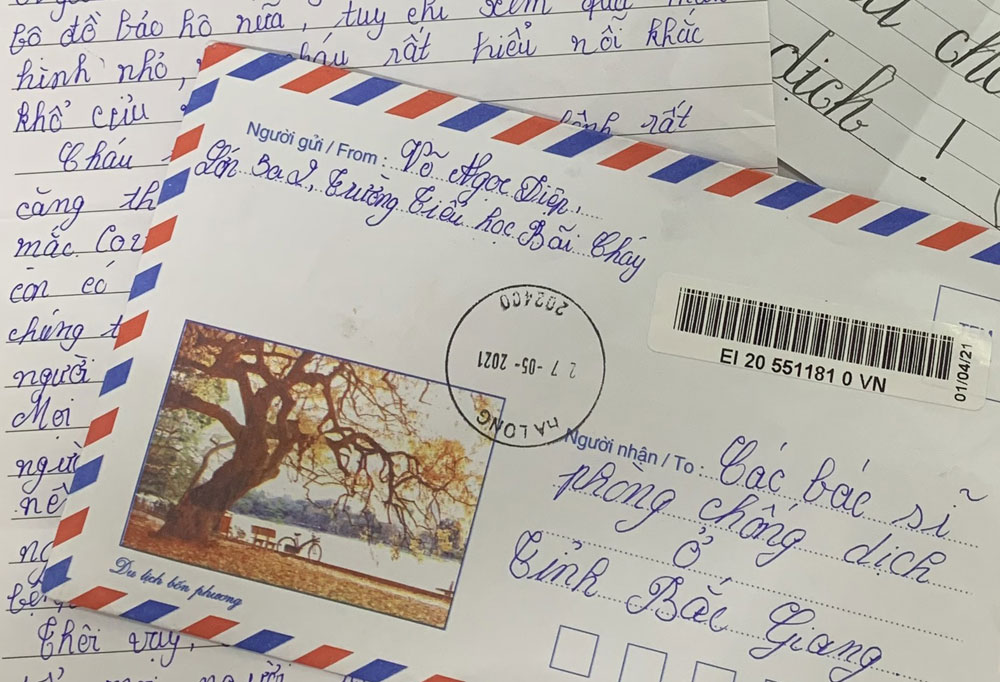 bộ đồ bảo hộ nữa, tuy chỉ xem qua màn
hình nhỏ, cháu rất hiểu nỗi khắc
khổ của
bệnh rất
Cháu
căng th
mắc Cov
còn có
chúng t
người
Mọi
người
nế
ng
bện
Thôi vậy,
mọi người
dịch !
Người gửi / From : Võ Ngọc Diệp,
Lớp 3a2, Trường Tiểu học Bãi Cháy
202400
27-05-2021
HA LONG
EI 20 551181 0 VN
01/04/21
Người nhận / To : Các bác sĩ
phòng chống dịch
ở
Tỉnh Bắc Giang
Du lịch bốn phương